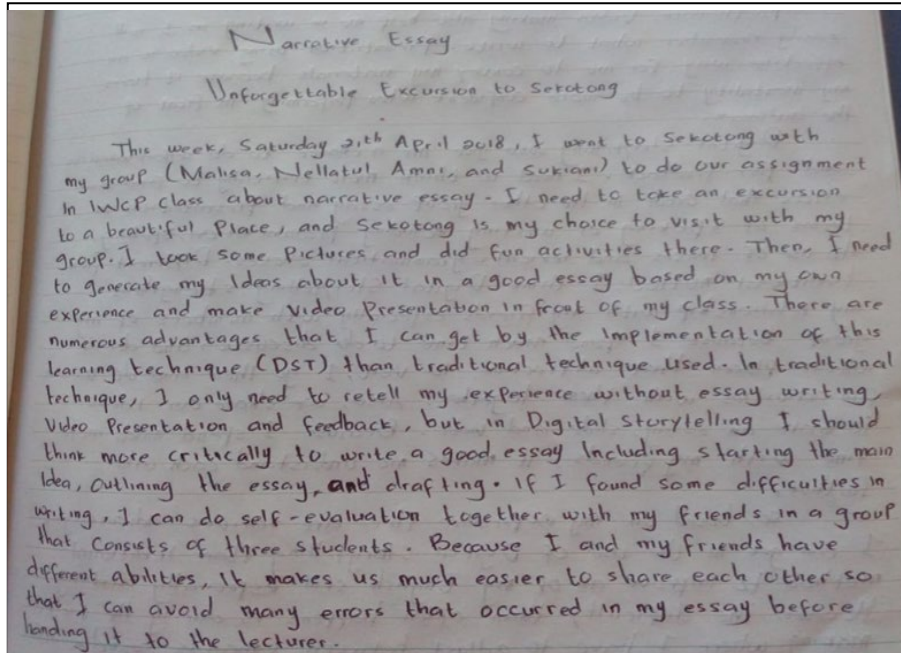 Narrative Essay
Unforgettable Excursion to Sekotong
This week, Saturday 21th April 2018, I went to Sekotong with
my group (Malisa, Nellatul, Amni, and Sukiani) to do our assignment
In IWCP class about narrative essay. I need to take an excursion
to a beautiful Place, and Sekotong is my choice to visit with my
group. I took some Pictures and did fun activities there. Then, I need
to generate my Ideas about it in a good essay based on my own
experience and make Video Presentation in front of my class. There are
numerous advantages that I can get by the Implementation of this
learning technique (DST) than traditional technique used. In traditional
technique, I only need to retell my experience without essay writing,
Video Presentation and feedback, but in Digital Storytelling I should
think more critically to write a good essay Including starting the main
Idea, outlining the essay, and drafting. If I found some difficulties in
writing, I can do self-evaluation together with my friends in a group
that consists of three students. Because I and my friends have
different abilities, It makes us much easier to share each other so
that I can avoid many errors that occurred in my essay before
handing it to the lecturer.